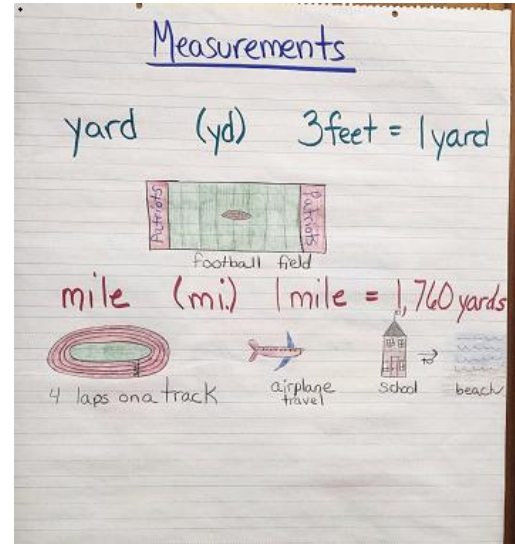 Measurements
yard (yd) 3 feet = 1 yard
Patriots Patriots
football field
mile (mi.) 1 mile = 1,760 yards
4 laps on a track airplane travel school to beach